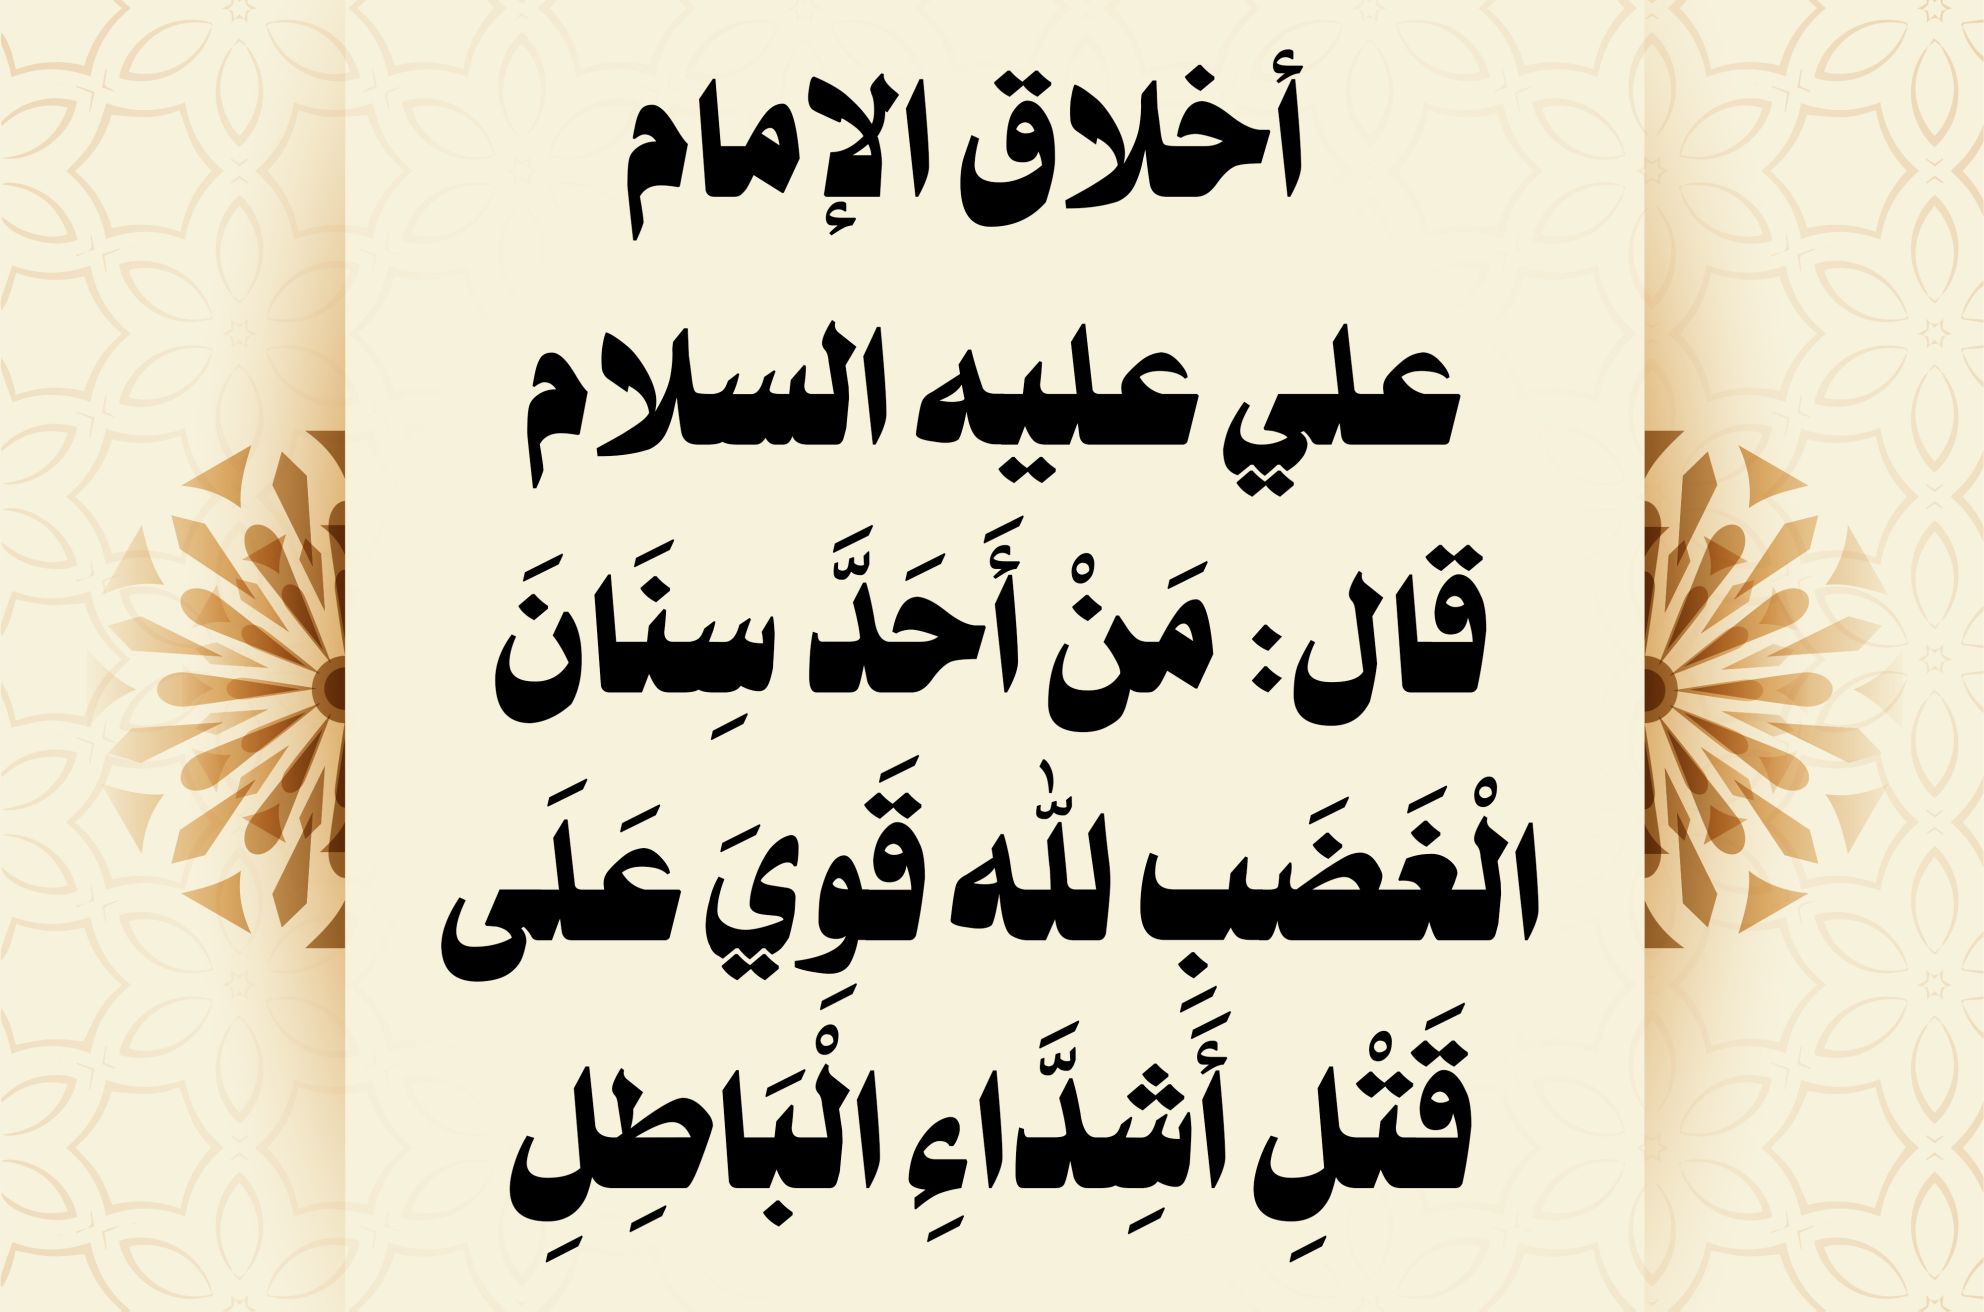 أخلاق الإمام
علي عليه السلام
قال: مَنْ أَحَدَّ سِنَانَ
الْغَضَبِ للّٰه قَوِيَ عَلَى
قَتْلِ أَشِدَّاءِ الْبَاطِلِ